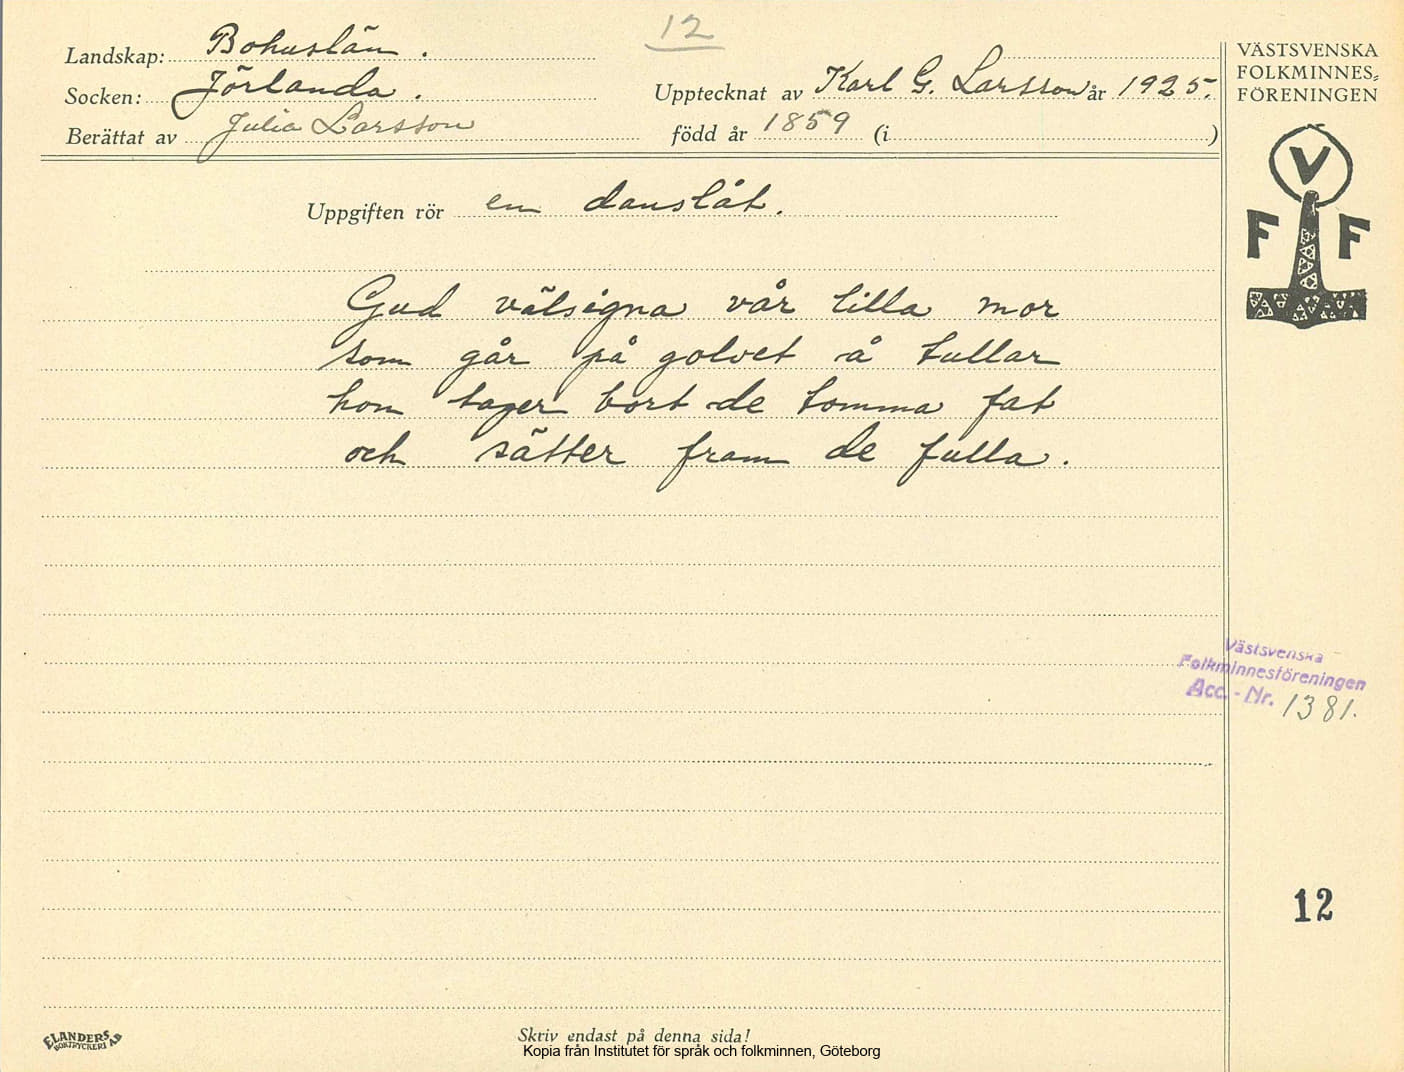 12
Landskap: Bohuslän.
Socken: Jörlanda.
Upptecknat av Karl G. Larsson år 1925.
Berättat av Julia Larsson
född år 1859 (i )
VÄSTSVENSKA
FOLKMINNES-
FÖRENINGEN
V
F F
Uppgiften rör en danslåt.
Gud välsigna vår lilla mor
som går på golvet å tullar
hon tager bort de tomma fat
och sätter fram de fulla.
Västsvenska
Folkminnesföreningen
Acc. - Nr. 1381.
12
ELANDERS
BOKTRYCKERI AB
Skriv endast på denna sida!
Kopia från Institutet för språk och folkminnen, Göteborg